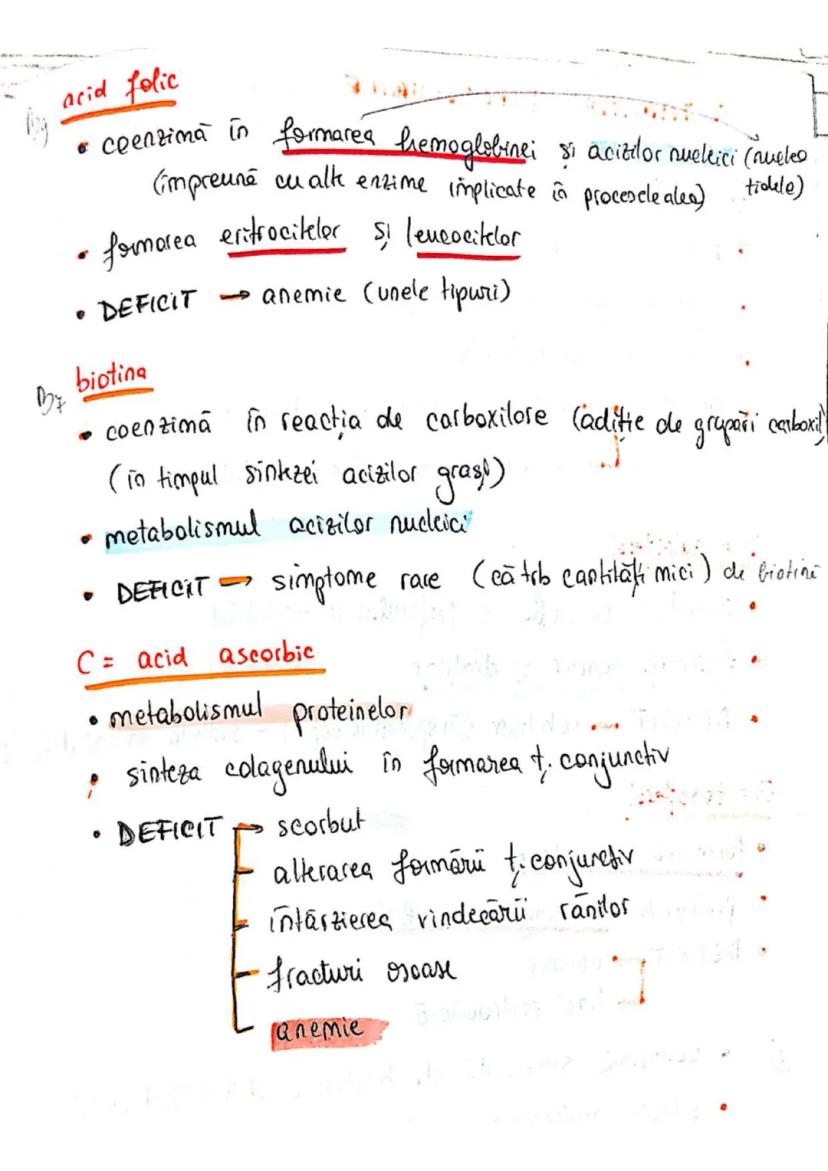 acid folic
B9
• coenzimă în formarea hemoglobinei și acizilor nucleici (nucleo
(împreună cu alte enzime implicate în procesele alea) tidele)
• formarea eritrocitelor și leucocitelor
• DEFICIT → anemie (unele tipuri)
B7 biotina
• coenzimă în reacția de carboxilare (adiție de grupări carboxil)
(în timpul sintezei acizilor grași)
• metabolismul acizilor nucleici
• DEFICIT → simptome rare (că trb cantități mici) de biotină
C = acid ascorbic
• metabolismul proteinelor
• sinteza colagenului în formarea ț. conjunctiv
• DEFICIT → scorbut
alterarea formării ț. conjunctiv
întârzierea vindecării rănilor
fracturi osoase
anemie